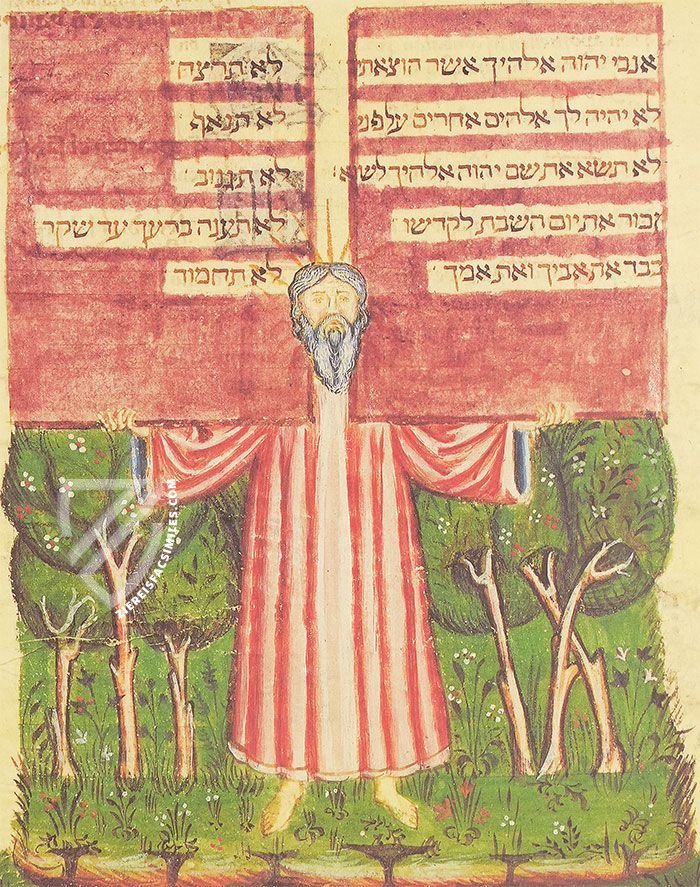 אנכי יהוה אלהיך אשר הוצאתי
לא יהיה לך אלהים אחרים על פני
לא תשא את שם יהוה אלהיך לשוא
זכור את יום השבת לקדשו
כבד את אביך ואת אמך
לא תרצח
לא תנאף
לא תגנוב
לא תענה ברעך עד שקר
לא תחמוד
ZIEREISFACSIMILES.COM